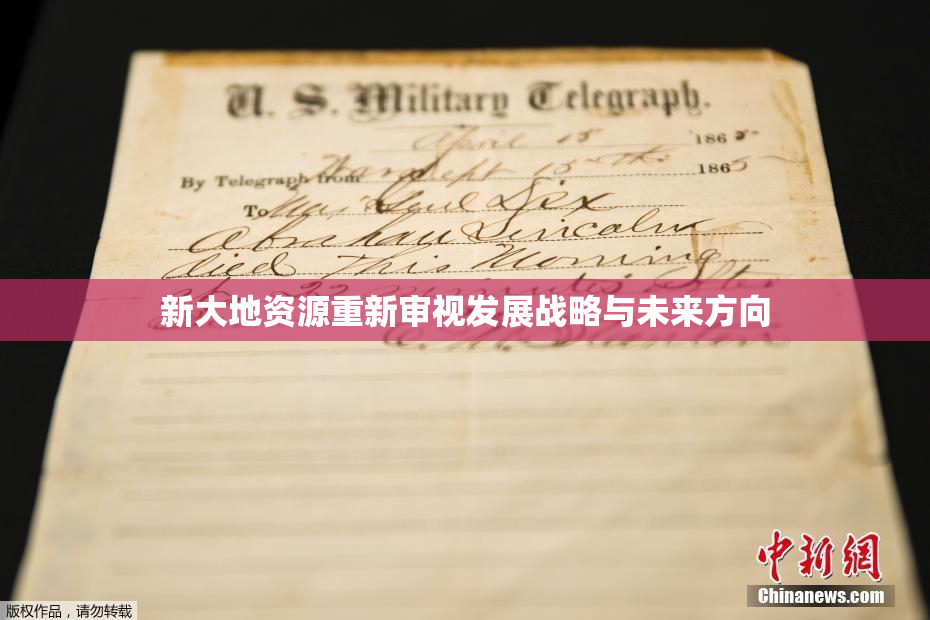 U. S. Military Telegraph.
April 15 1865
By Telegraph from War Dept 15th 1865
To Maj Genl Dix
Abraham Lincoln
died This Morning
22 minutes after
新大地资源重新审视发展战略与未来方向
E. M. Stanton
中新网
Chinanews.com
版权作品，请勿转载